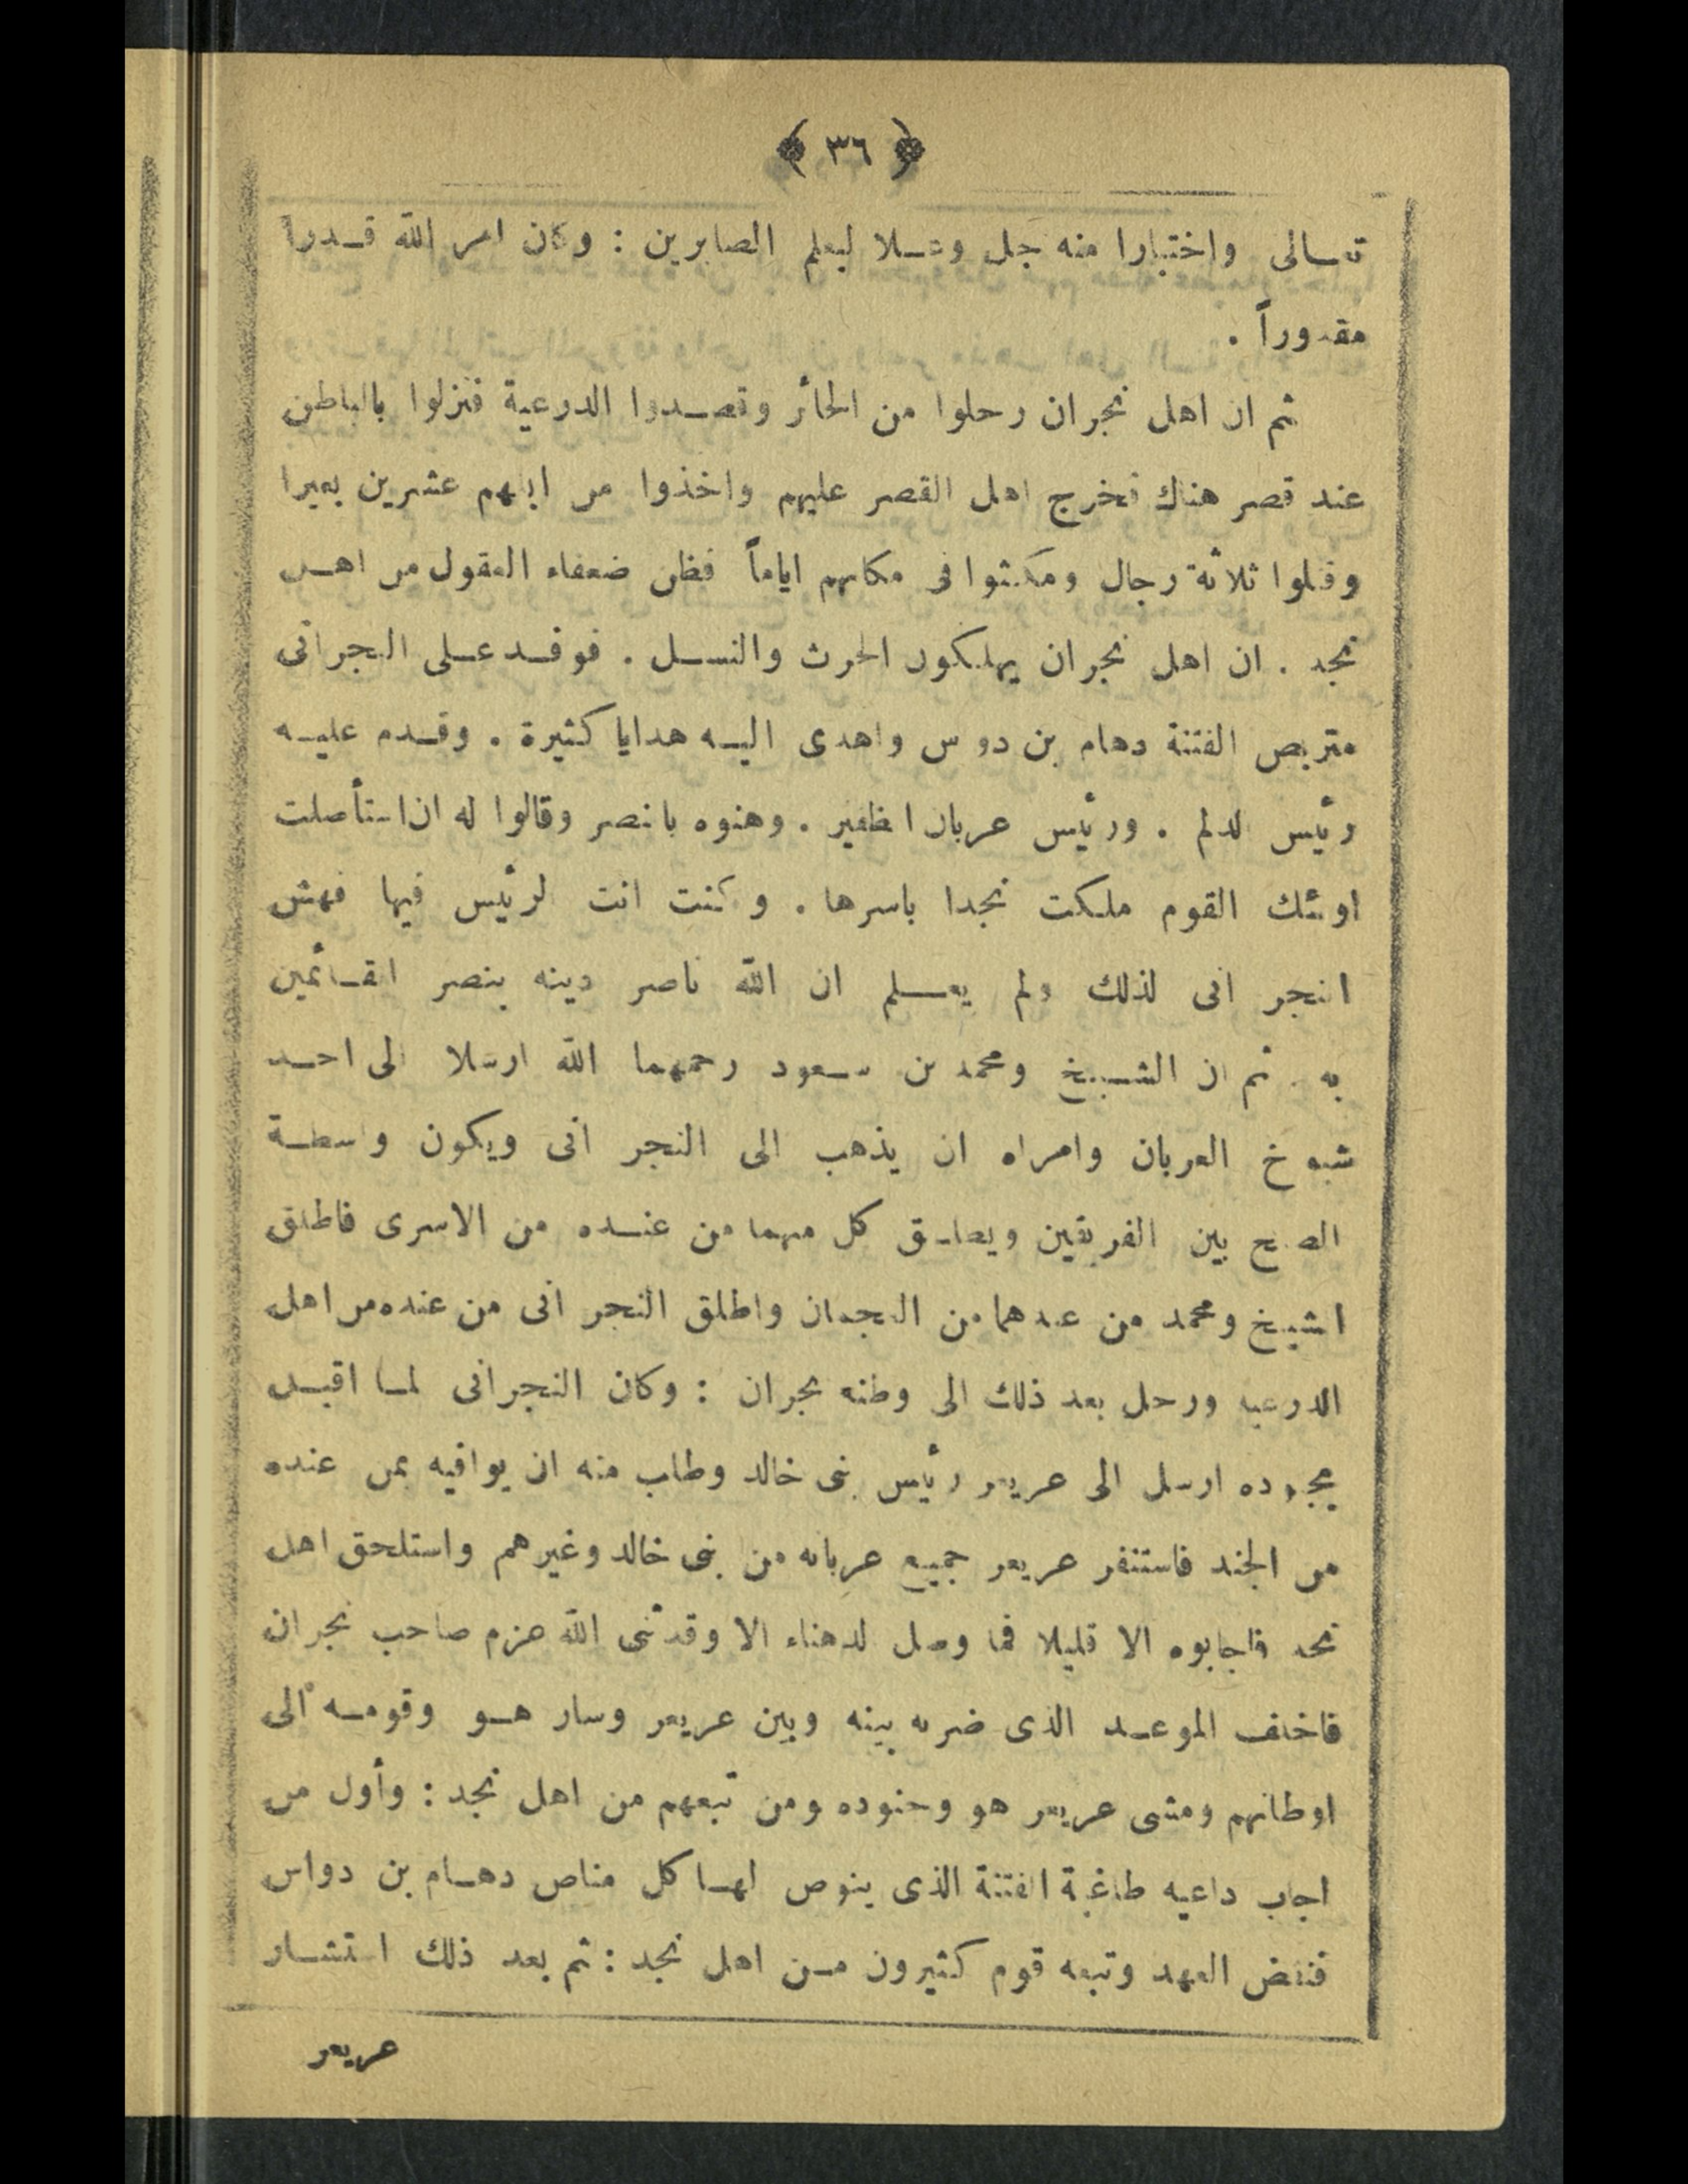 ﴿ ٣٦ ﴾
تعالى واختبارا منه جل وعلا ليعلم الصابرين : وكان امر الله قدراً
مقدوراً .
ثم ان اهل نجران رحلوا من الحائر وقصدوا الدرعية فنزلوا بالباطن
عند قصر هناك فخرج اهل القصر عليهم واخذوا من ابلهم عشرين بعيرا
وقتلوا ثلاثة رجال ومكثوا فى مكانهم اياماً فظن ضعفاء العقول من اهل
نجد . ان اهل نجران يهلكون الحرث والنسل . فوفد على النجرانى
متربص الفتنة دهام بن دوس واهدى اليه هدايا كثيرة . وقدم عليه
رئيس الدلم . ورئيس عربان الظفير . وهنوه بالنصر وقالوا له ان استأصلت
اولئك القوم ملكت نجدا باسرها . وكنت انت الرئيس فيها فهش
النجرانى لذلك ولم يعلم ان الله ناصر دينه بنصر القائمين
به . ثم ان الشيخ ومحمد بن سعود رحمهما الله ارسلا الى احد
شيوخ العربان وامراه ان يذهب الى النجرانى ويكون واسطة
الصلح بين الفريقين ويطلق كل منهما من عنده من الاسرى فاطلق
الشيخ ومحمد من عندهما من العجمان واطلق النجرانى من عنده من اهل
الدرعيه ورحل بعد ذلك الى وطنه نجران : وكان النجرانى لما اقبل
بجنوده ارسل الى عريعر رئيس بنى خالد وطلب منه ان يوافيه بمن عنده
من الجند فاستنفر عريعر جميع عربانه من بنى خالد وغيرهم واستلحق اهل
نجد فاجابوه الا قليلا فما وصل الدهناء الا وقد ثنى الله عزم صاحب نجران
فاخلف الموعد الذى ضربه بينه وبين عريعر وسار هو وقومه الى
اوطانهم ومشى عريعر هو وجنوده ومن تبعهم من اهل نجد : وأول من
اجاب داعيه طاغية الفتنة الذى ينوص لها كل مناص دهام بن دواس
فنقض العهد وتبعه قوم كثيرون من اهل نجد : ثم بعد ذلك استشار
عريعر